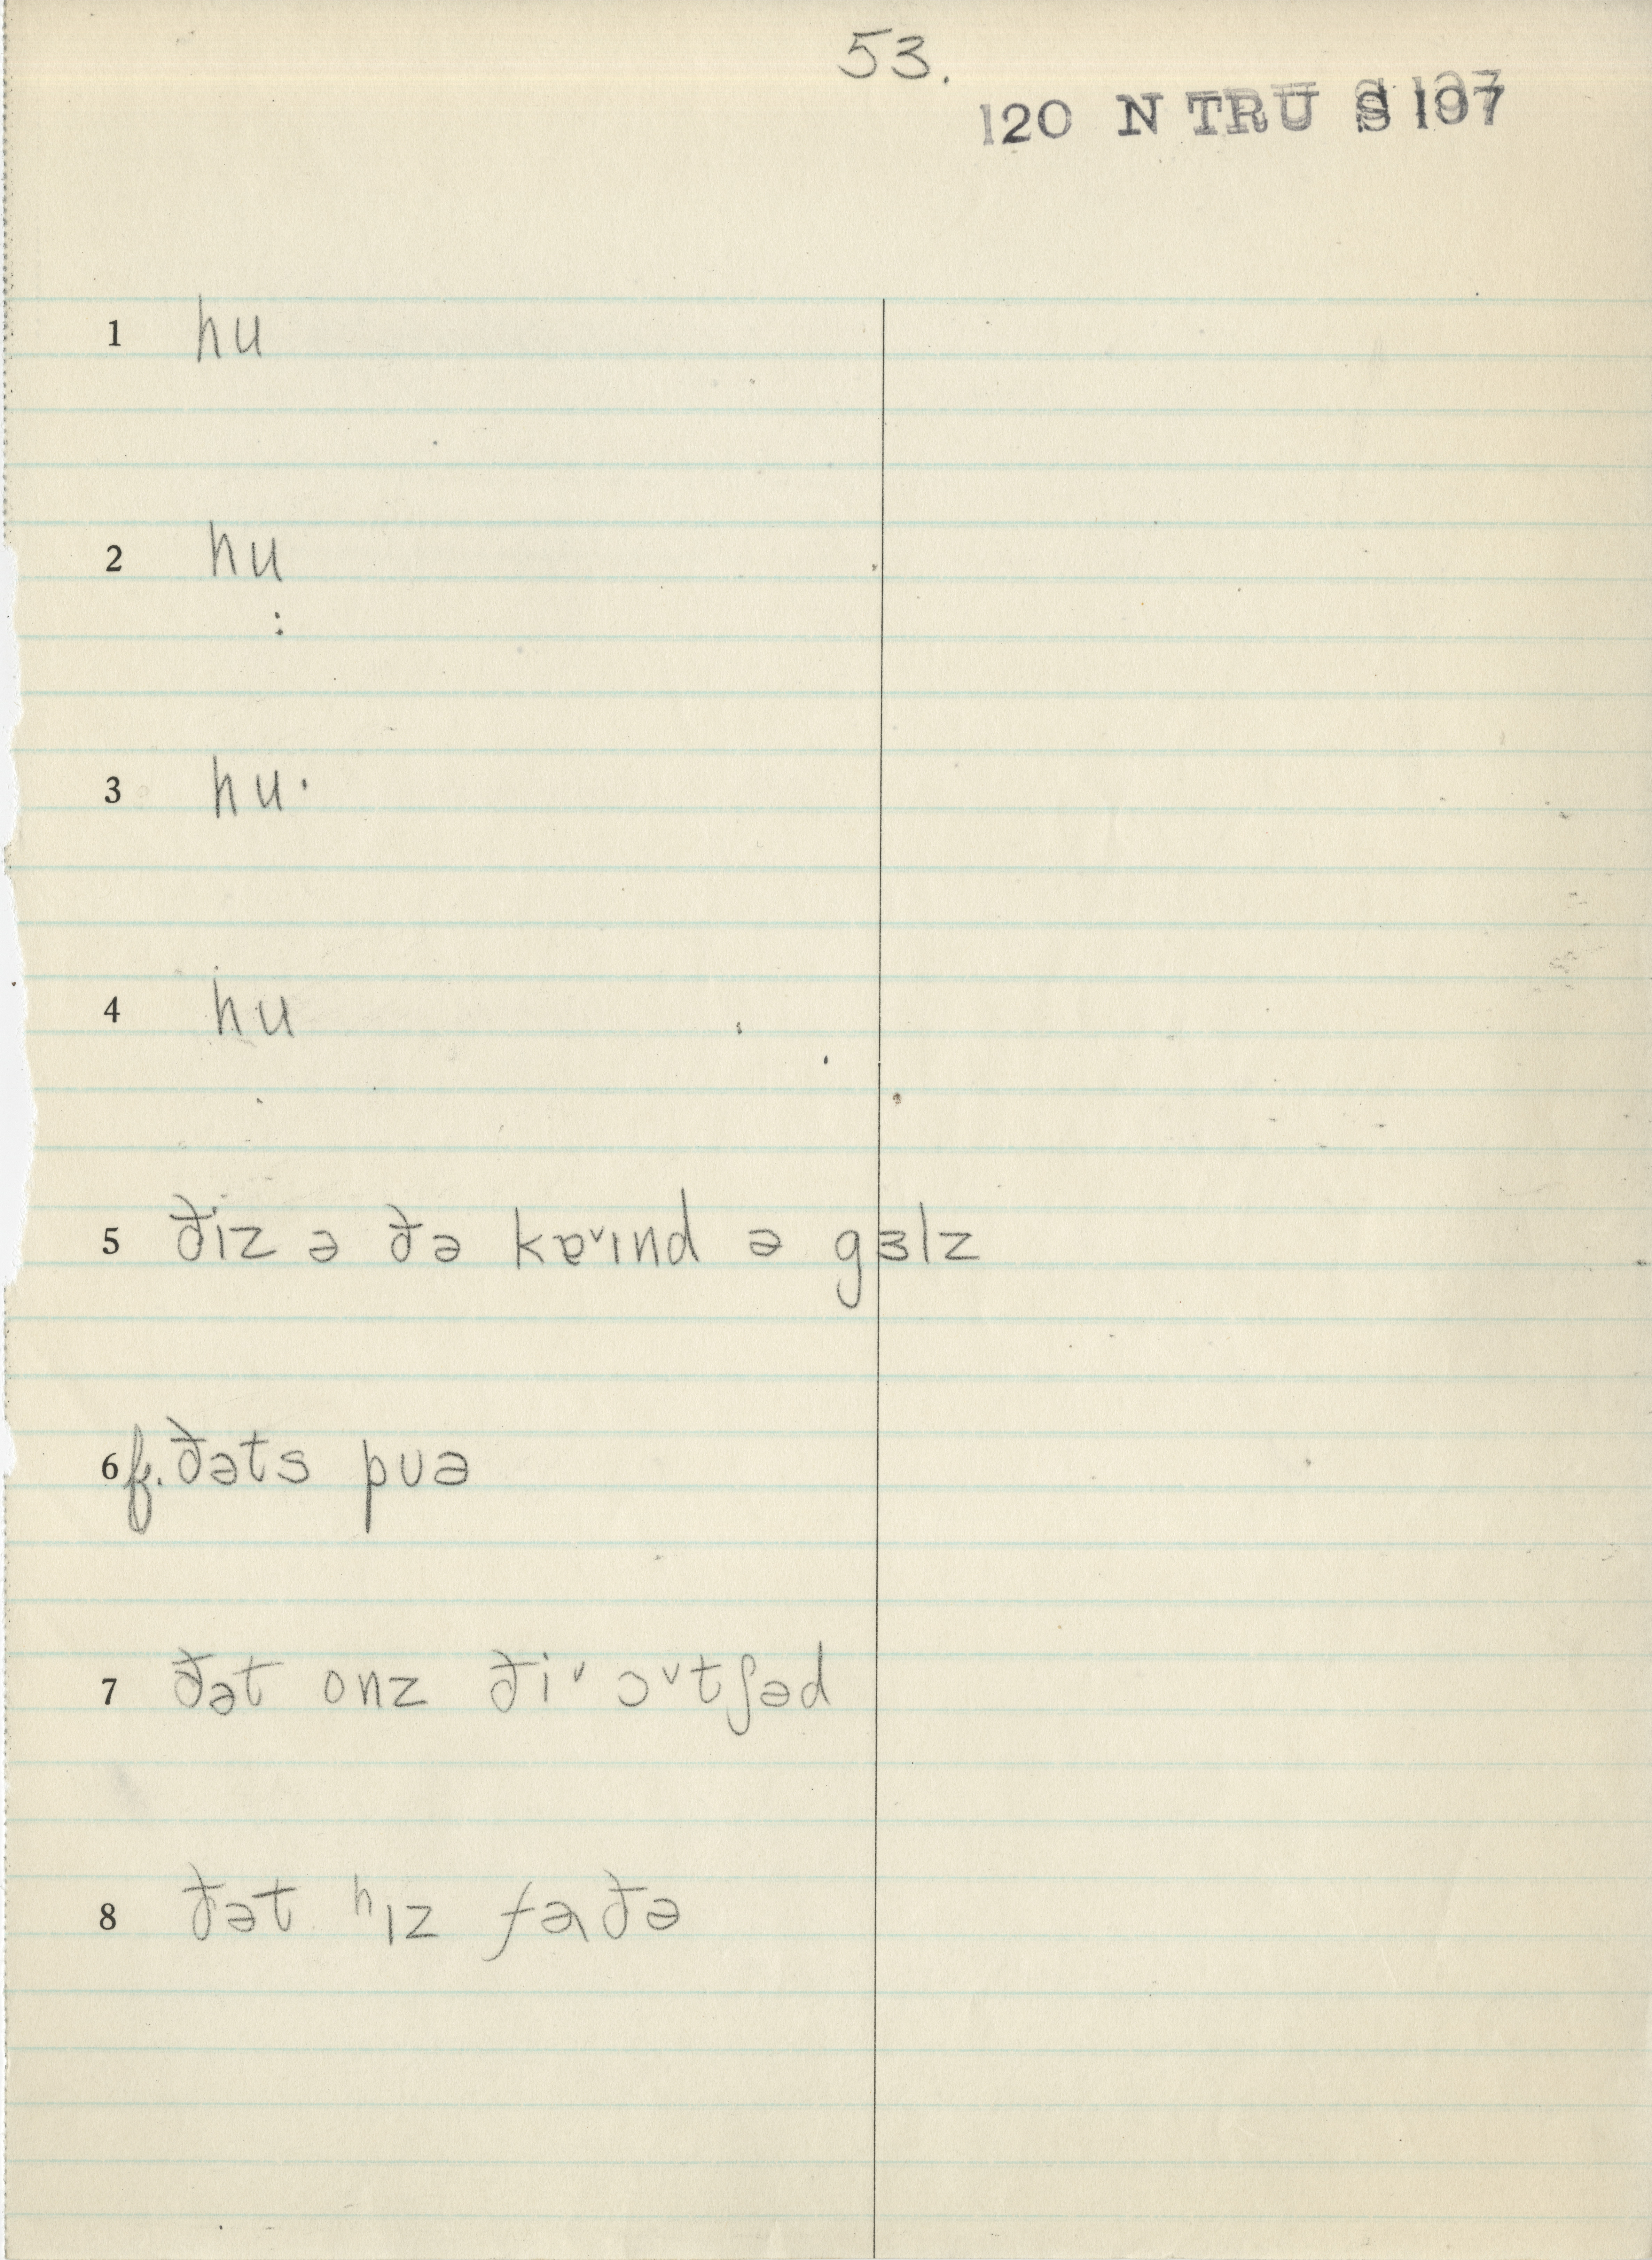 53.
120 N TRU S 107
1 hu
2 hu
:
3 hu·
4 hu
5 ðiz ə ðə kɐ˅ɪnd ə gɜlz
6 f. ðəts puə
7 ðət onz ði˅ ɔ˅tʃəd
8 ðət ʰɪz faðə